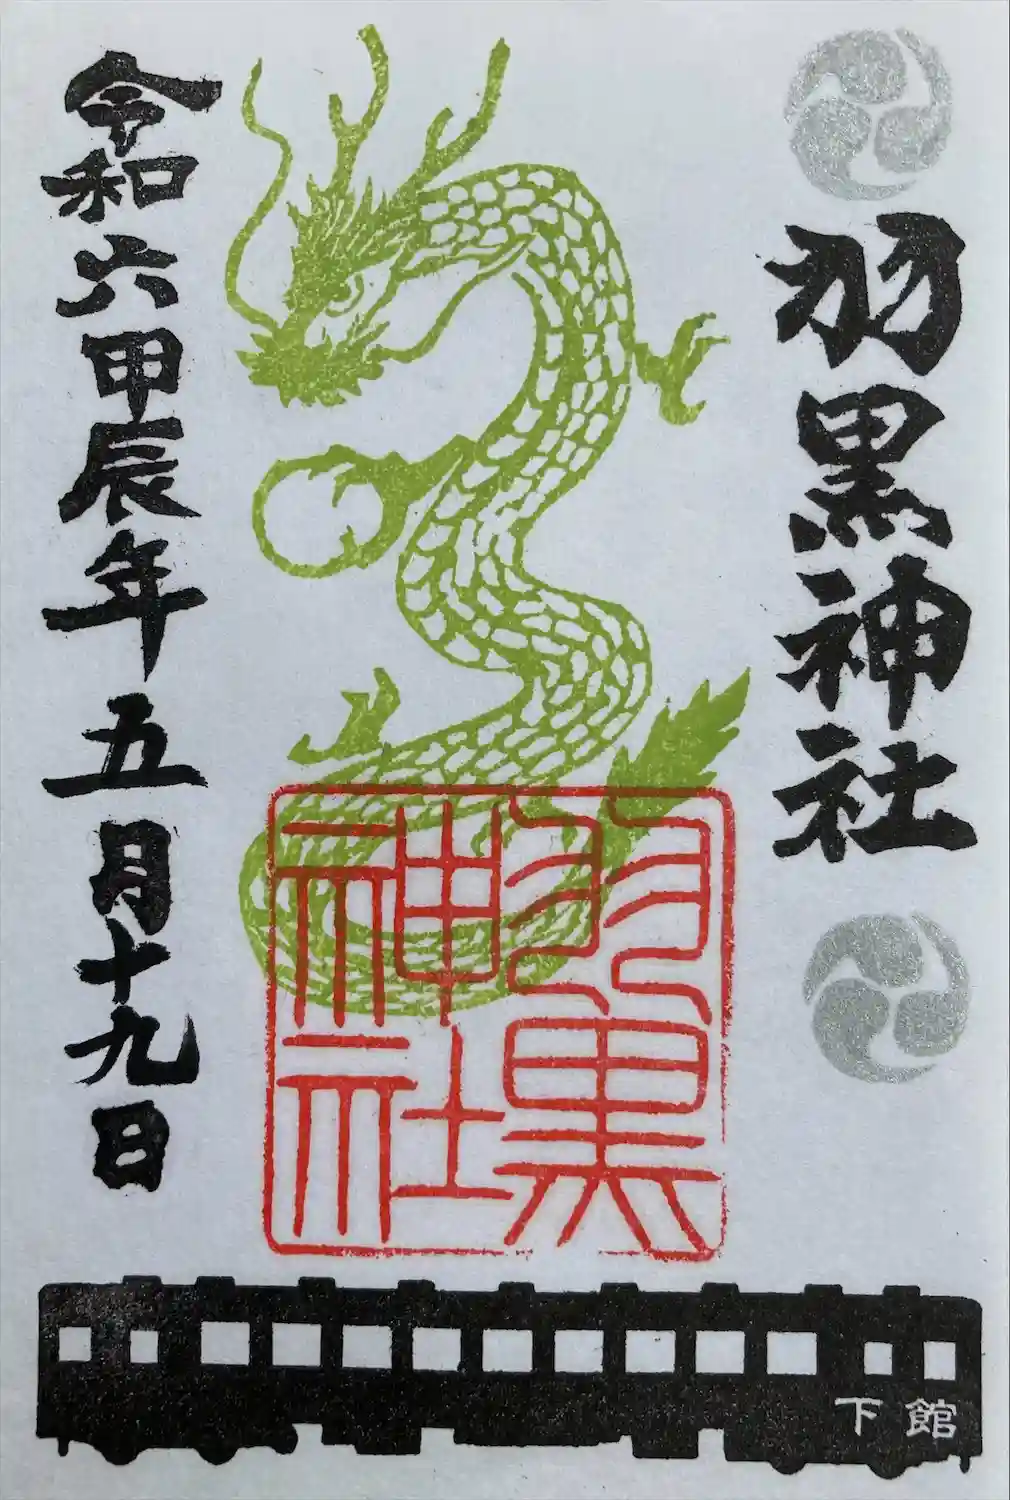 羽黒神社
令和六甲辰年五月十九日
羽黒
神社
下館